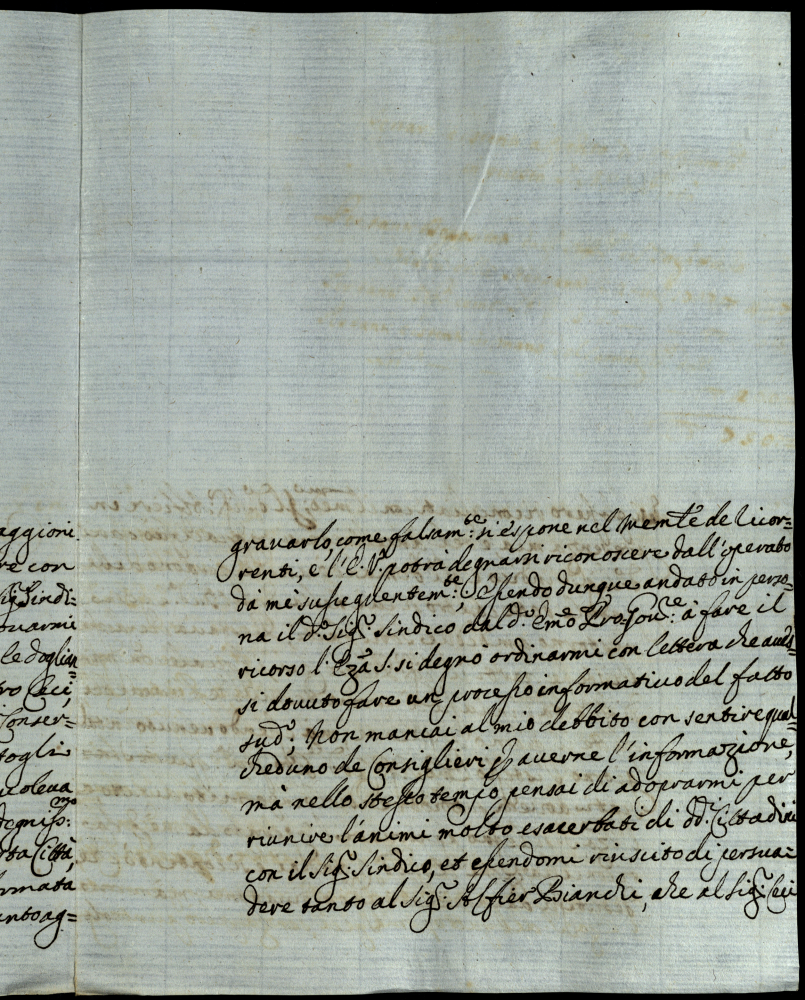 aggioni
re con
Sig.r Sindi=
ouarmi
le doglian=
ro Ceci,
Conser=
togli
uoleua
degniss:mo
sta Città,
ormata
anto ag=
grauarlo, come falsam:te si espone nel Mem.le de licor=
renti, e l'E. V.a potrà degnarsi riconoscere dall'operato
da me susseguentem:te; Essendo dunque andato in perso=
na il d.o Sig.r Sindico dal d.o Emo Progou:re à fare il
ricorso l'Eza S. si degnò ordinarmi con lettera che auess=
si douuto fare un processo informatiuo del fatto
sud.o; Non mancai al mio debbito con sentire qual=
cheduno de Consiglieri p auerne l'informazione,
mà nello stesso tempo pensai di adoprarmi per
riunire l'ánimi molto esacerbati di dd. Cittadini
con il Sig.r Sindico, et essendomi riuscito di persua=
dere tanto al Sig.r Alfier Bianchi, che al Sig.r Ceci